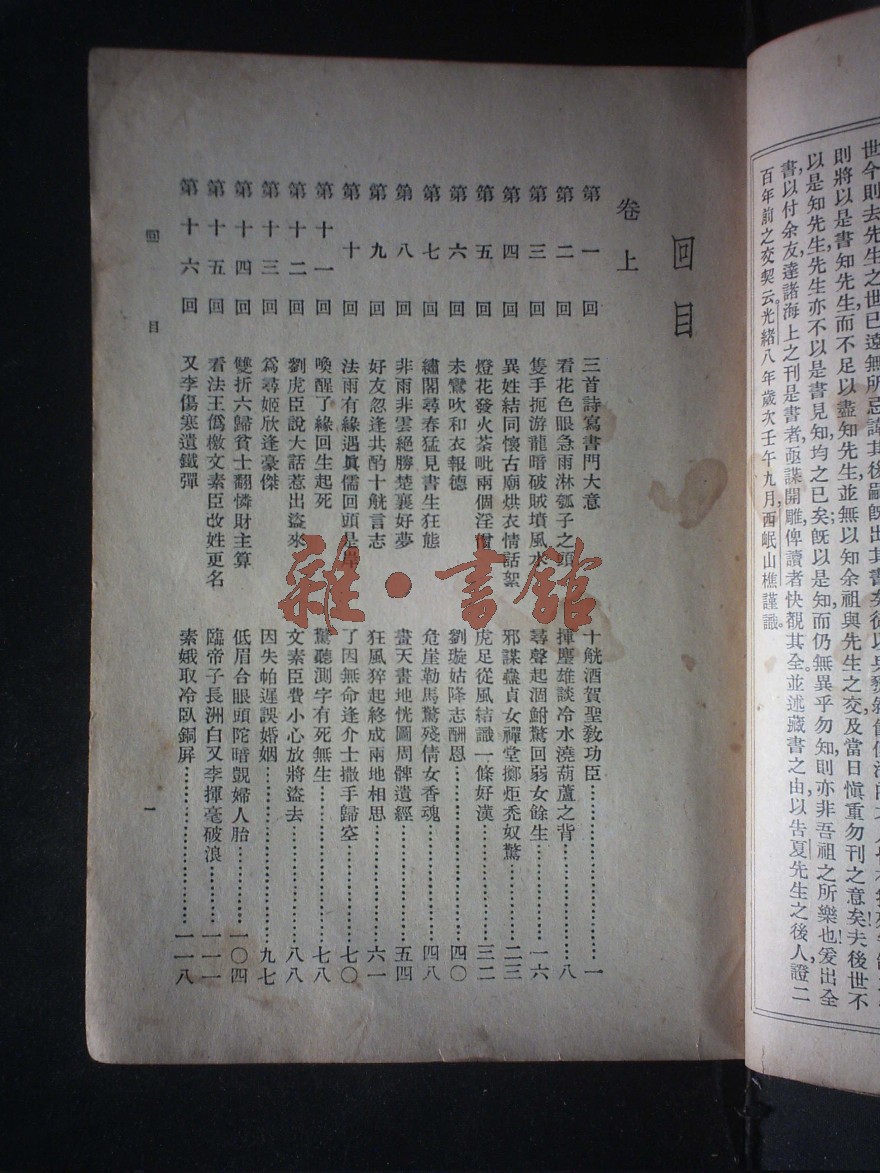 世今則去先生之世已遠無所忌諱其後嗣既出其書矣
則將以是書知先生而不足以盡知先生並無以知余祖與先生之交及當日愼重勿刊之意矣夫後世不
以是知先生先生亦不以是書見知均之已矣既以是知而仍無異乎勿知則亦非吾祖之所樂也爰出全
書以付余友達諸海上之刊是書者亟謀開雕俾讀者快覩其全並述藏書之由以告夏先生之後人證二
百年前之交契云光緒八年歲次壬午九月西岷山樵謹識
回目
卷上
第一回 三首詩寫書門大意 十觥酒賀聖敎功臣 一
第二回 看花色眼急雨淋瓠子之頭 揮麈雄談冷水澆葫蘆之背 八
第三回 隻手扼游龍暗破賊墳風水 尋聲起涸鮒驚回弱女餘生 一六
第四回 異姓結同懷古廟烘衣情話絮 邪謀蠱貞女禪堂擲炬禿奴驚 二三
第五回 燈花發火荼毗兩個淫僧 虎足從風結識一條好漢 三二
第六回 未鸞吹和衣報德 劉璇姑降志酬恩 四〇
第七回 繡閣尋春猛見書生狂態 危崖勒馬驚殘倩女香魂 四八
第八回 非雨非雲絕勝楚襄好夢 畫天畫地恍圖周髀遺經 五四
第九回 好友忽逢共酌十觥言志 狂風猝起終成兩地相思 六一
第十回 法雨有緣遇眞儒回頭是岸 了因無命逢介士撒手歸空 七〇
第十一回 喚醒了緣回生起死 驚聽測字有死無生 七八
第十二回 劉虎臣說大話惹出盜來 文素臣費小心放將盜去 八八
第十三回 爲尋姬欣逢豪傑 因失帕遲誤婚姻 九七
第十四回 雙折六歸貧士翻憐財主算 低眉合眼頭陀暗覬婦人胎 一〇四
第十五回 看法王僞檄文素臣改姓更名 臨帝子長洲白又李揮毫破浪 一一一
第十六回 又李傷寒遺鐵彈 素娥取冷臥銅屏 一一八
回目 一
雜·書館